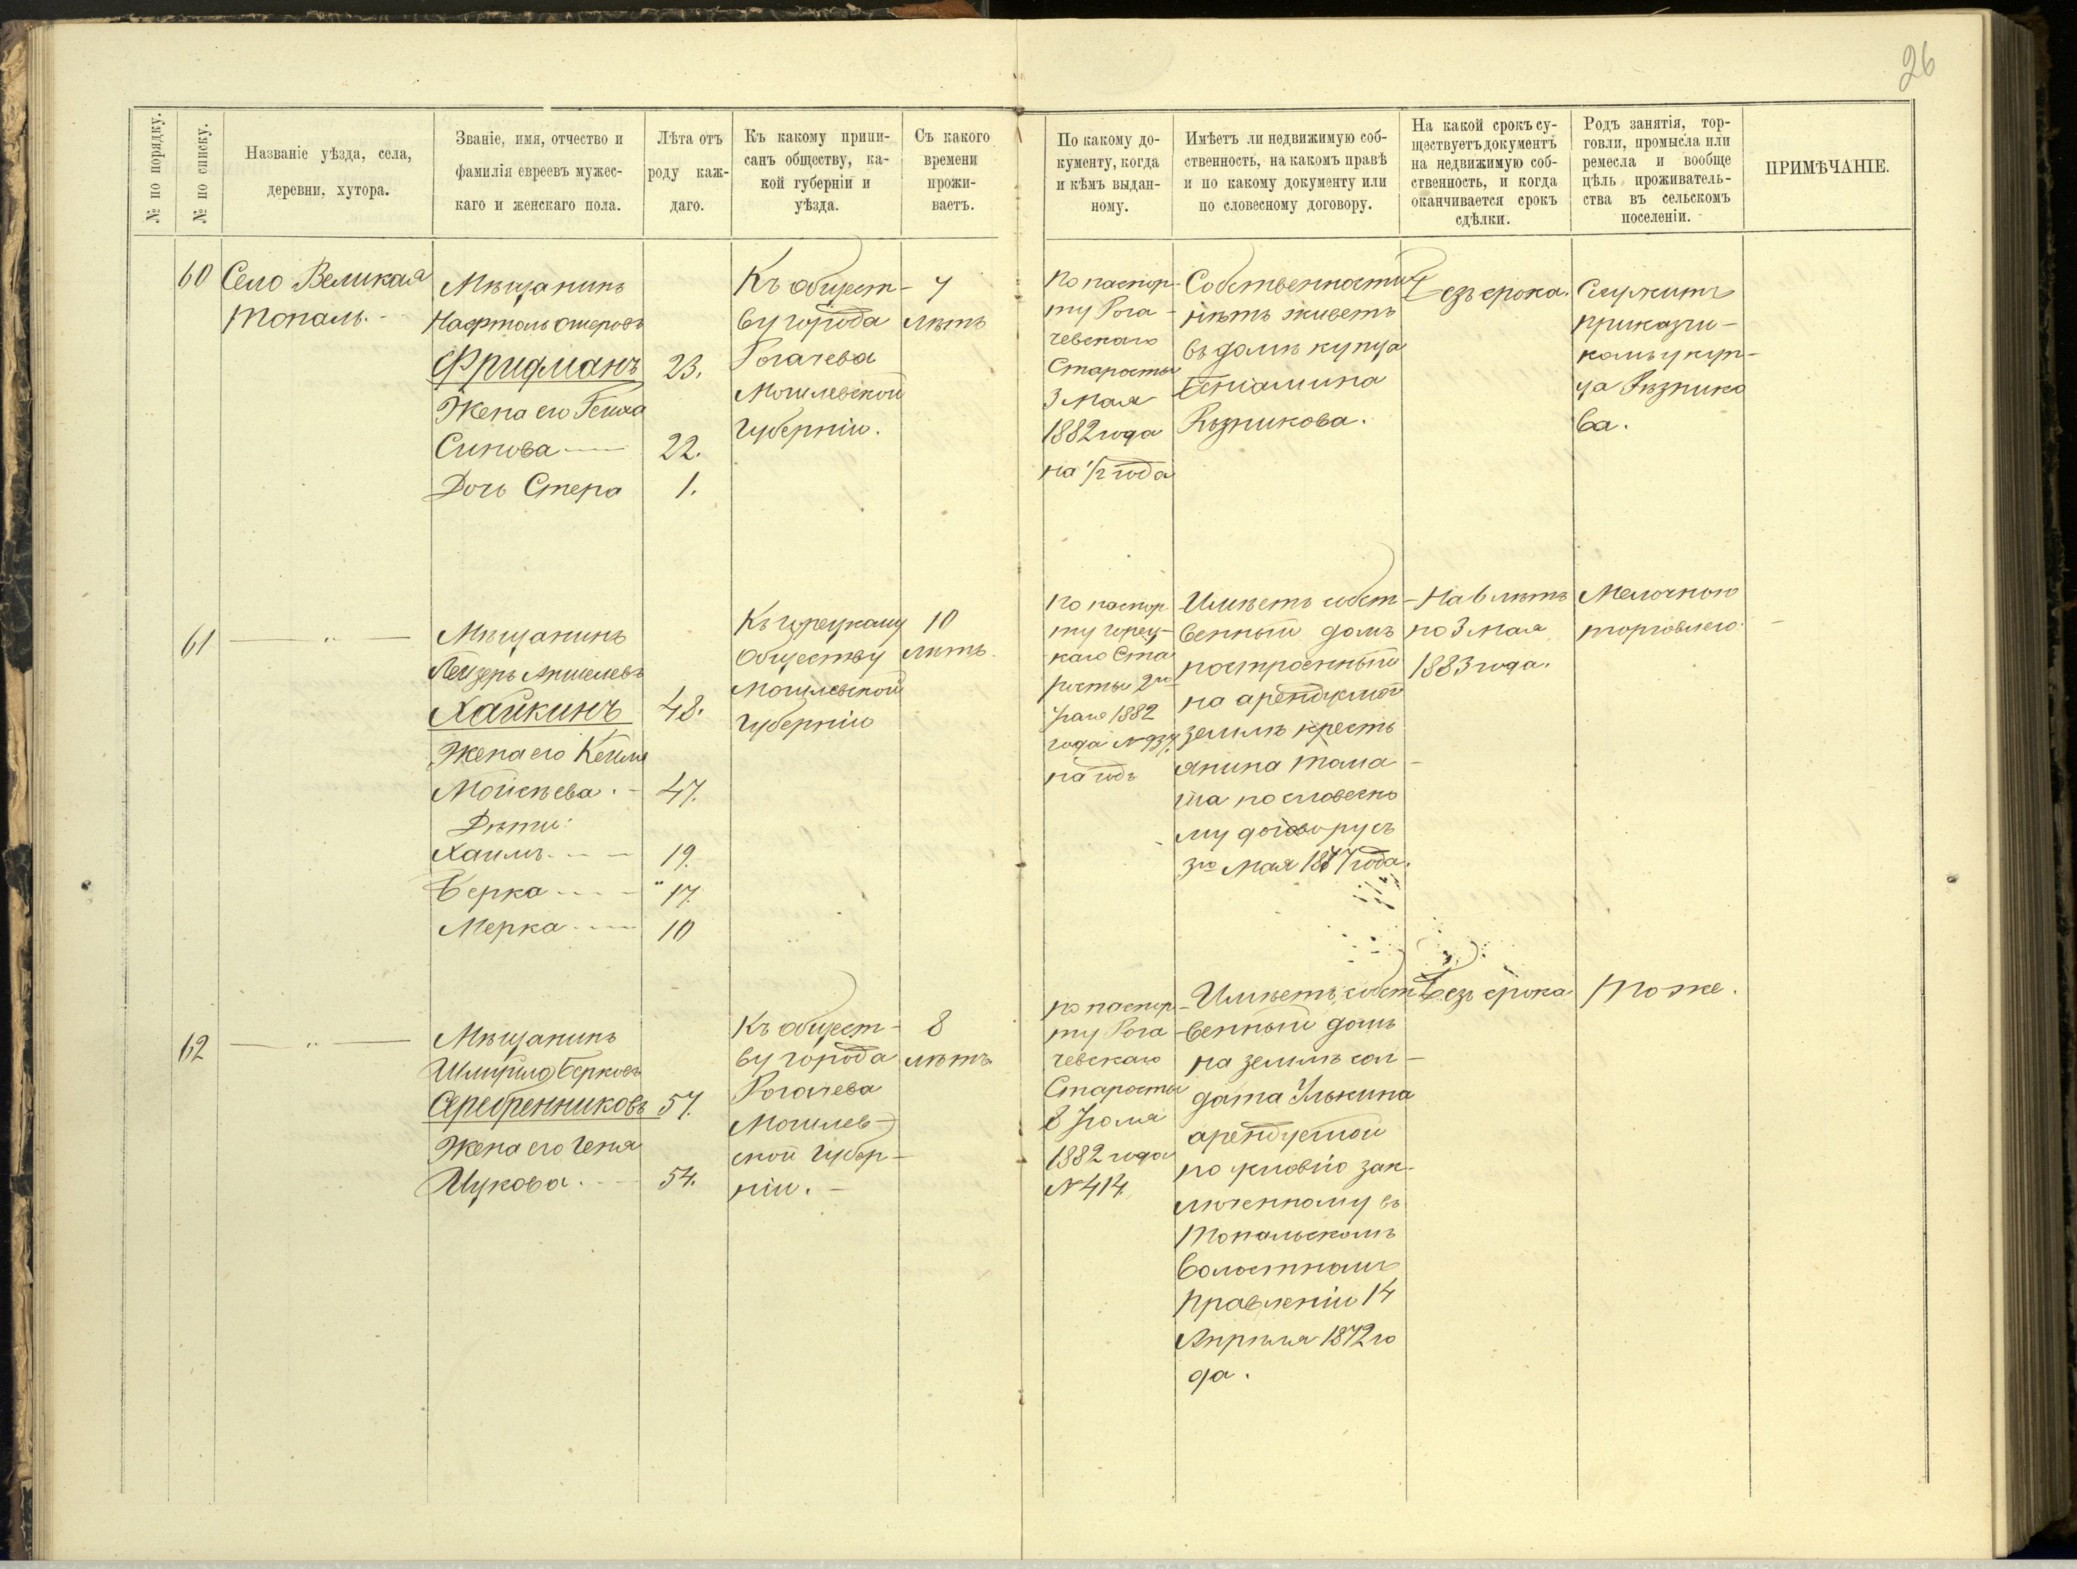 26
№ по порядку.
№ по списку.
Названіе уѣзда, села,
деревни, хутора.
Званіе, имя, отчество и
фамилія евреевъ мужес-
каго и женскаго пола.
Лѣта отъ
роду каж-
даго.
Къ какому припи-
санъ обществу, ка-
кой губерніи и
уѣзда.
Съ какого
времени
прожи-
ваетъ.
По какому до-
кументу, когда
и кѣмъ выдан-
ному.
Имѣетъ ли недвижимую соб-
ственность, на какомъ правѣ
и по какому документу или
по словесному договору.
На какой срокъ су-
ществуетъ документъ
на недвижимую соб-
ственность, и когда
оканчивается срокъ
сдѣлки.
Родъ занятія, тор-
говли, промысла или
ремесла и вообще
цѣль проживатель-
ства въ сельскомъ
поселеніи.
ПРИМѢЧАНІЕ.
60
Село Великая
Топаль.
Мѣщанинъ
Нафтоль Ошеровъ
Фридманъ 23.
Жена его
22.
Дочь Стера 1.
Къ общест-
ву города
Рогачева
Могилевской
Губерніи.
7
лѣтъ
По паспор-
ту Рога-
чевскаго
Старосты
3 Мая
1882 года
на 1/2 года
Собственности
нѣтъ живетъ
въ домѣ купца
Беніамина
Рѣзникова.
Безъ срока.
Служитъ
приказчи-
комъ у куп-
ца Рѣзнико
ва.
61 — „ —
Мѣщанинъ
Лейзеръ
Хайкинъ 48.
Жена его
Мойсѣева. 47.
Дѣти:
Хаимъ 19.
Берка 17.
Мерка 10
Къ Горецкому
Обществу
Могилевской
Губерніи
10
лѣтъ
По паспор
ту Горец-
каго Ста
росты 2го
1882
года №
на годъ
Имѣетъ собст-
венный домъ
построенный
на арендуемой
землѣ кресть
янина
по словесно
му договору съ
3го Мая 1877 года.
На 6 лѣтъ
по 3 Мая
1883 года.
Мелочною
торговлею.
62 — „ —
Мѣщанинъ
Берковъ
Серебренниковъ 57.
Жена его Геня
54.
Къ общест-
ву города
Рогачева
Могилев-
ской Губер-
ніи.
8
лѣтъ
По паспор-
ту Рога
чевскаго
Старосты
8 Іюля
1882 года
№ 414
Имѣетъ собст
венный домъ
на землѣ сол-
дата Улькина
арендуемой
по условію зак-
люченному въ
Топальскомъ
Волостномъ
Правленіи 14
Апрѣля 1872 го
да.
Безъ срока
Тоже.